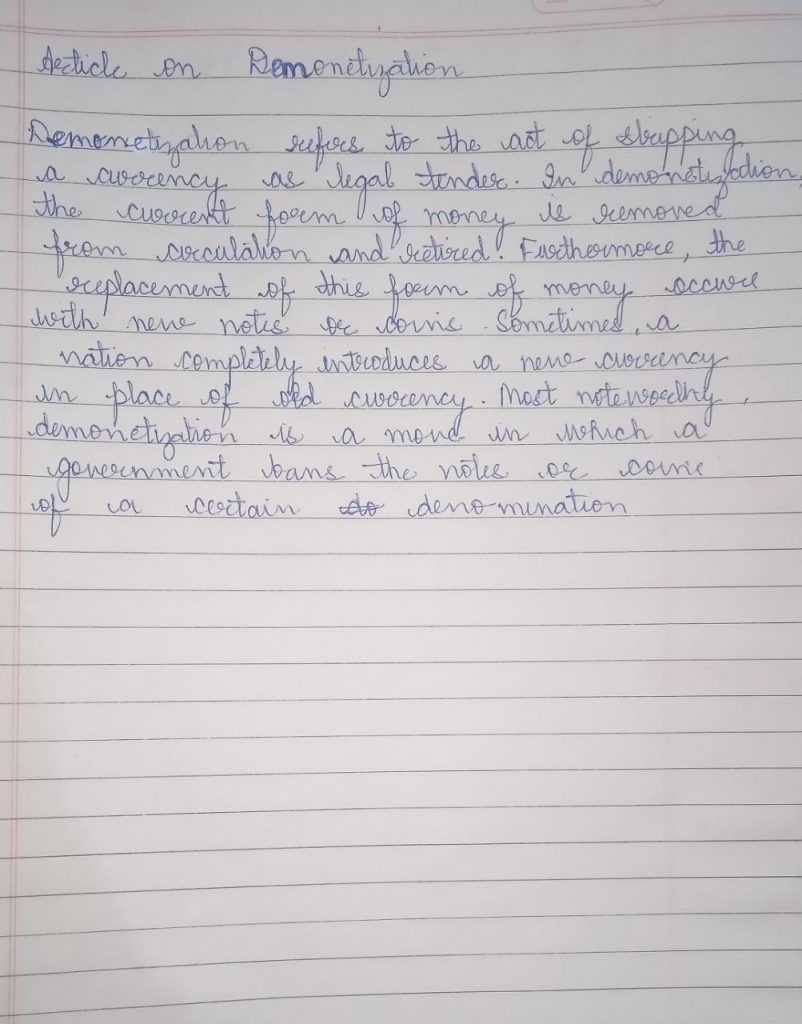 Article on Demonetization
Demonetization refers to the act of stripping
a currency as legal tender. In demonetization,
the current form of money is removed
from circulation and retired. Furthermore, the
replacement of this form of money occurs
with new notes or coins. Sometimes, a
nation completely introduces a new currency
in place of old currency. Most noteworthy,
demonetization is a move in which a
government bans the notes or coins
of a certain denomination